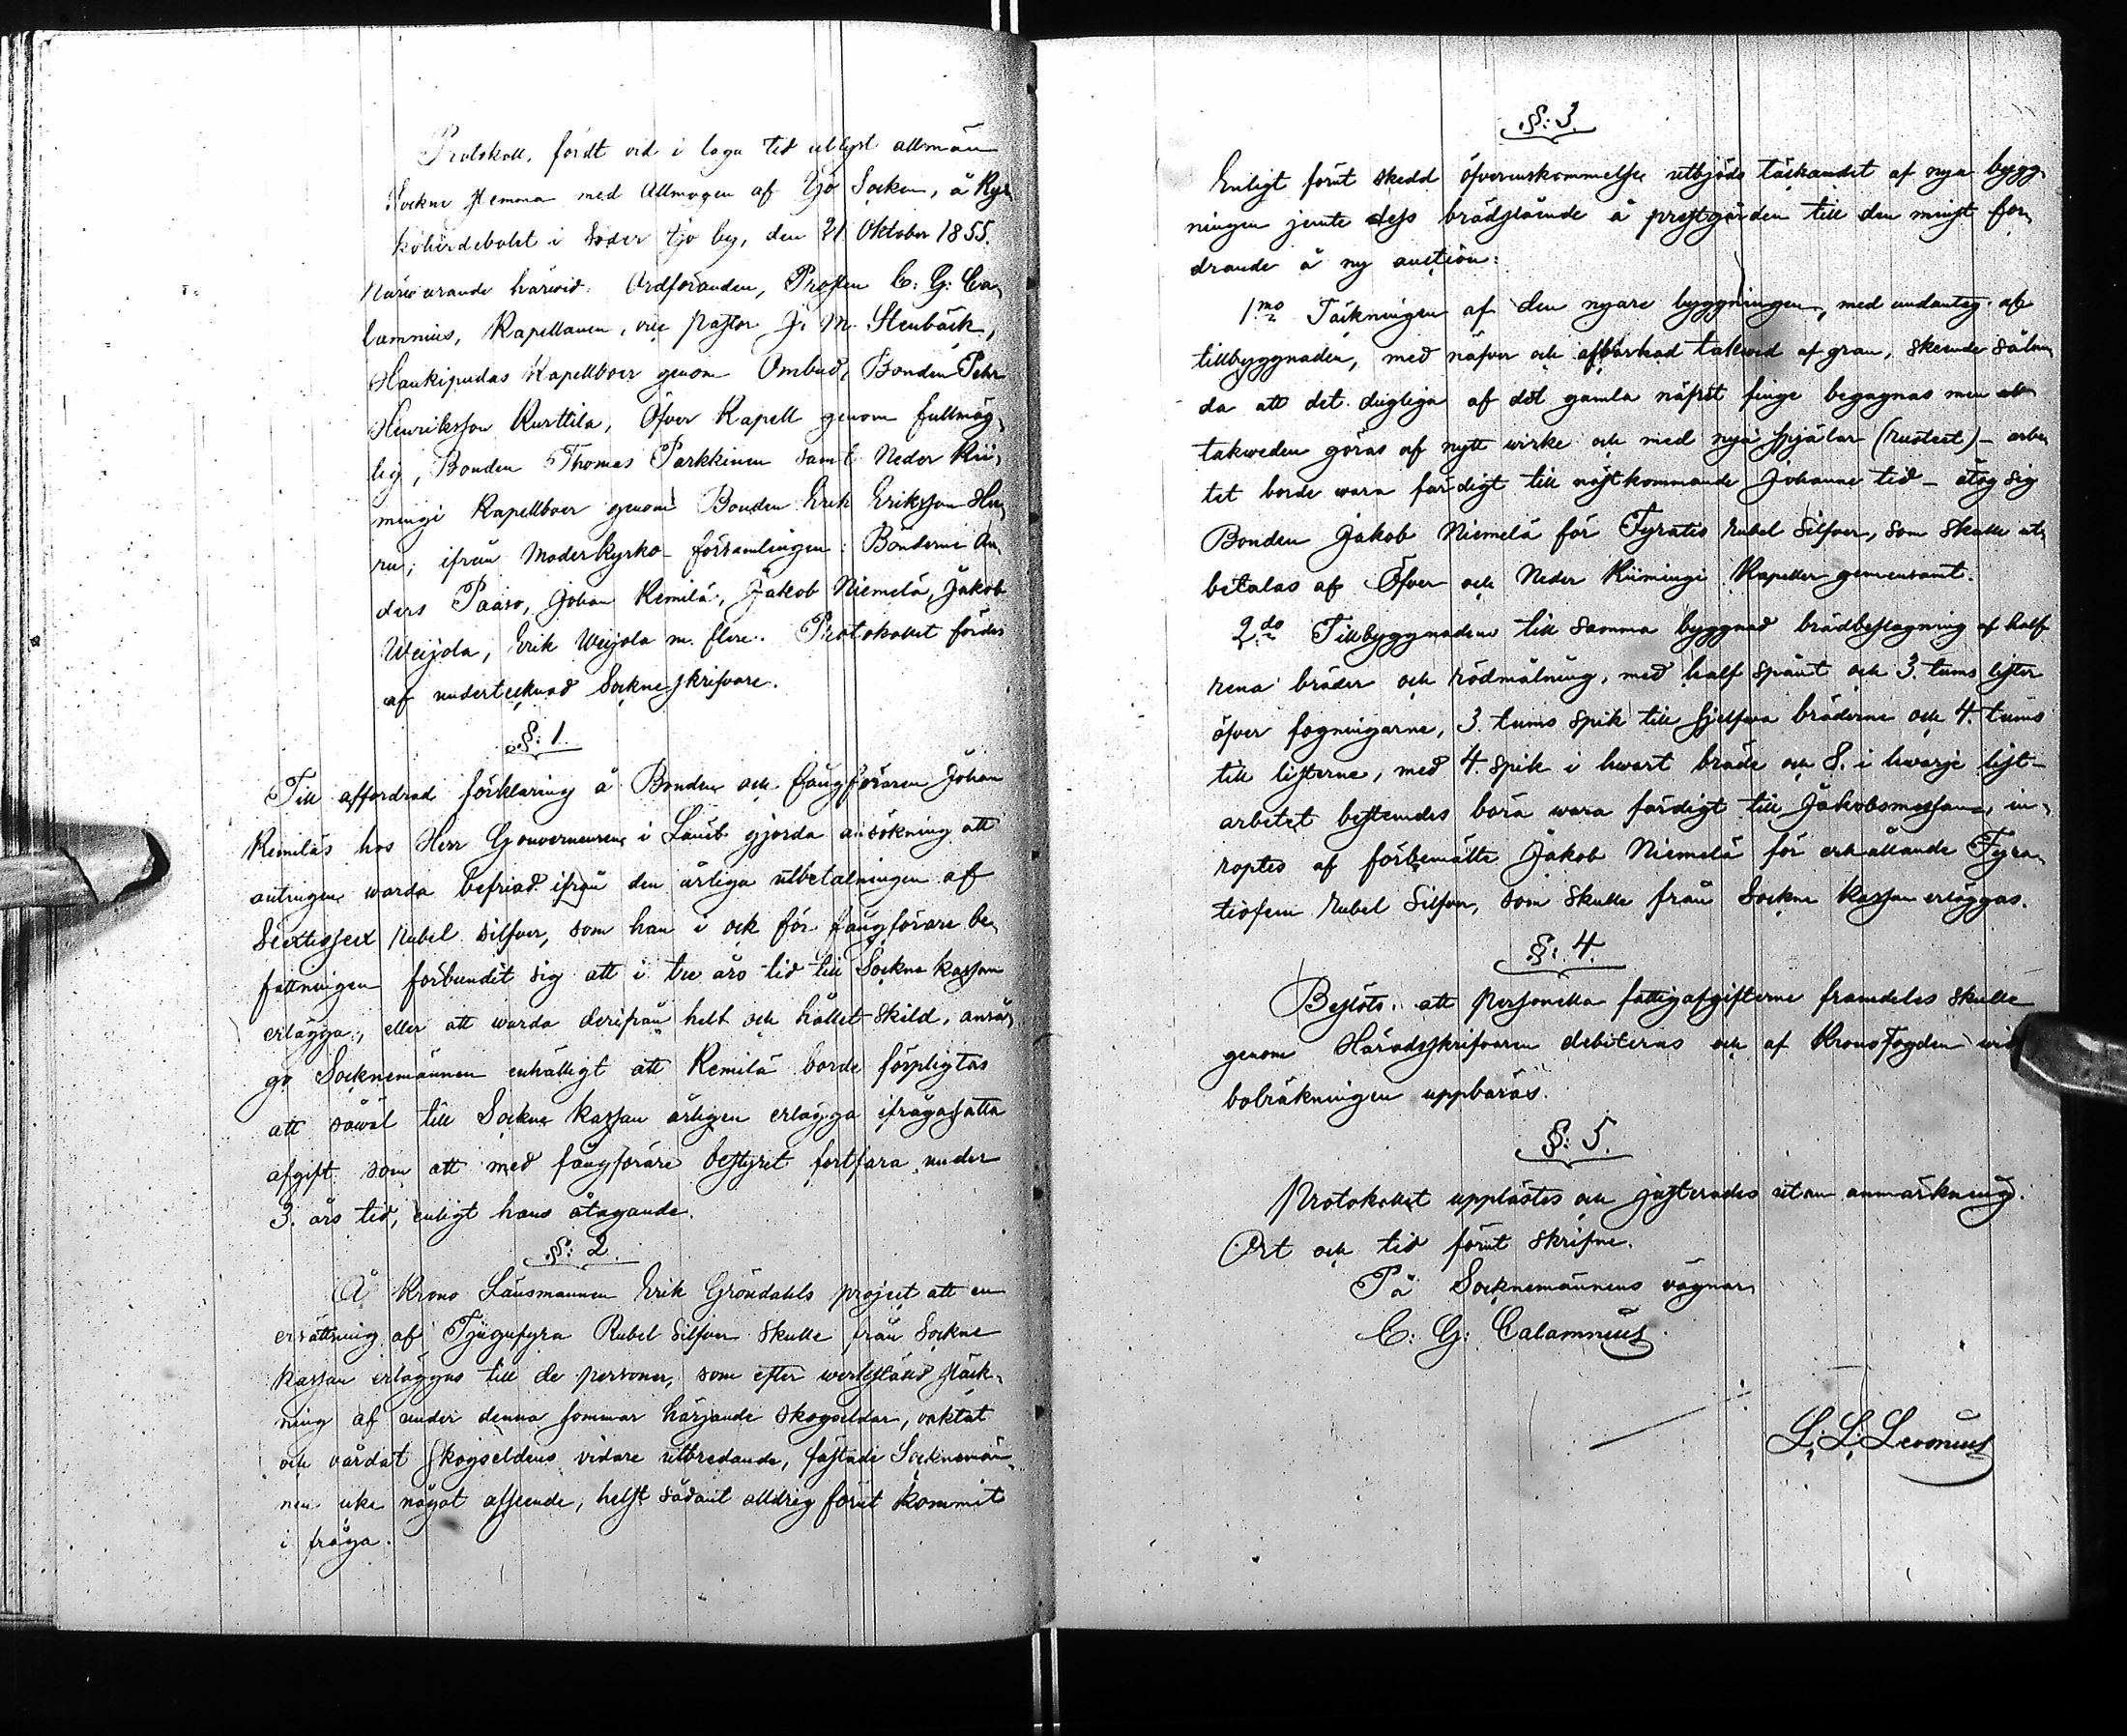 Protokoll, fördt vid i laga tid utlyst allmän
Sockne stemma med Allmogen af Ijo Socken, å Kyr¬
koherdebolet i Söder Ijo by, den 21 Oktober 1855.
Närwarande härwid: Ordföranden, Prosten C: G: Ca¬
lamnius, Kapellanen, vice pastor J. M. Stenbäck,
Haukipudas Kapellboer genom Ombud, Bonden Pehr
Henriksson Kurttila, Öfver Kapell genom fullmäg¬
tig, Bonden Thomas Parkkinen samt Neder Kii¬
mingi Kapellboer genom Bonden Erik Eriksson Hu¬
ru; ifrån Moderkyrko-församlingen: Bönderne An¬
ders Paaso, Johan Remilä, Jakob Niemelä, Jakob
Weijola, Erik Weijola m. flere. Protokollet fördes
af undertecknad Sockneskrifvare.
§: 1.
Till affordrad förklaring å Bonden och fångföraren Johan
Remiläs hos Herr Gouverneuren i Länet gjorda ansökning att
antingen warda befriad ifrån den årliga utbetalningen af
Sextiosex Rubel silfver, som han i och för fångförare be¬
fattningen förbundit sig att i tre års tid till Sockne kassan
erlägga, eller att warda derifrån helt och hållet skild, anså¬
go Socknemännen enhälligt att Remilä borde förpligtas
att såwäl till Sockne kassan årligen erlägga ifrågasatta
afgift som att med fångförare bestyret fortfara under
3. års tid, enligt hans åtagande.
§: 2.
Å Krono Länsmannen Erik Gröndahls project att en
ersättning af Tjugufyra Rubel Silfver skulle från Sockne
kassan erläggas till de personer, som efter werkställd släck¬
ning af under denna sommar härjande skogseldar, vaktat
och vårdat skogseldens vidare utbredande, fästade Socknemän¬
nen icke något afseende, helst sådant alldrig förut kommit
i fråga.
§: 3.
Enligt förut skedd öfverenskommelse utbjöds täckandet af nya bygg¬
ningen jemte dess brädslående å prestgården till den minst for¬
drande å ny auction:
1mo Täckningen af den nyare byggningen, med undantag af
tillbyggnaden, med näfver och afbarkad takved af gran, skeende sålun¬
da att det dugliga af det gamla näfret finge begagnas men
takweden göras af nytt wirke och med nya spjälar (ruoteet) - arbe
tet borde wara färdigt till nästkommande Johanne tid - åtog sig
Bonden Jakob Niemelä för Fyratio rubel silfver, som skulle ut¬
betalas af Öfver och Neder Kiimingi Kapeller gemensamt.
2do Tillbyggnadens till samma byggnad brädbeslagning af half
rena bräder och rödmålning, med half spånt och 3. tums lister
öfver fogningarne, 3. tums spik till sjelfwa bräderne och 4. tums
till listerne, med 4. spik i hwart bräde och 8. i hwarje list -
arbetet bestemdes böra wara färdigt till Jakobsmessan, in¬
roptes af förbemälte Jakob Niemelä för erhållande Fyra¬
tiofem Rubel Silfver, som skulle från Sockne kassan erläggas.
§: 4.
Beslöts, att personella fattigafgifterne framdeles skulle
genom Häradsskrifvaren debiteras och af Kronofogden wid
bolräkningen uppbäras.
§: 5.
Protokollet upplästes och justerades utan anmärkning.
Ort och tid förut skrifne.
På Socknemännens vägnar
C: G: Calamnius.
L: L: Levonius